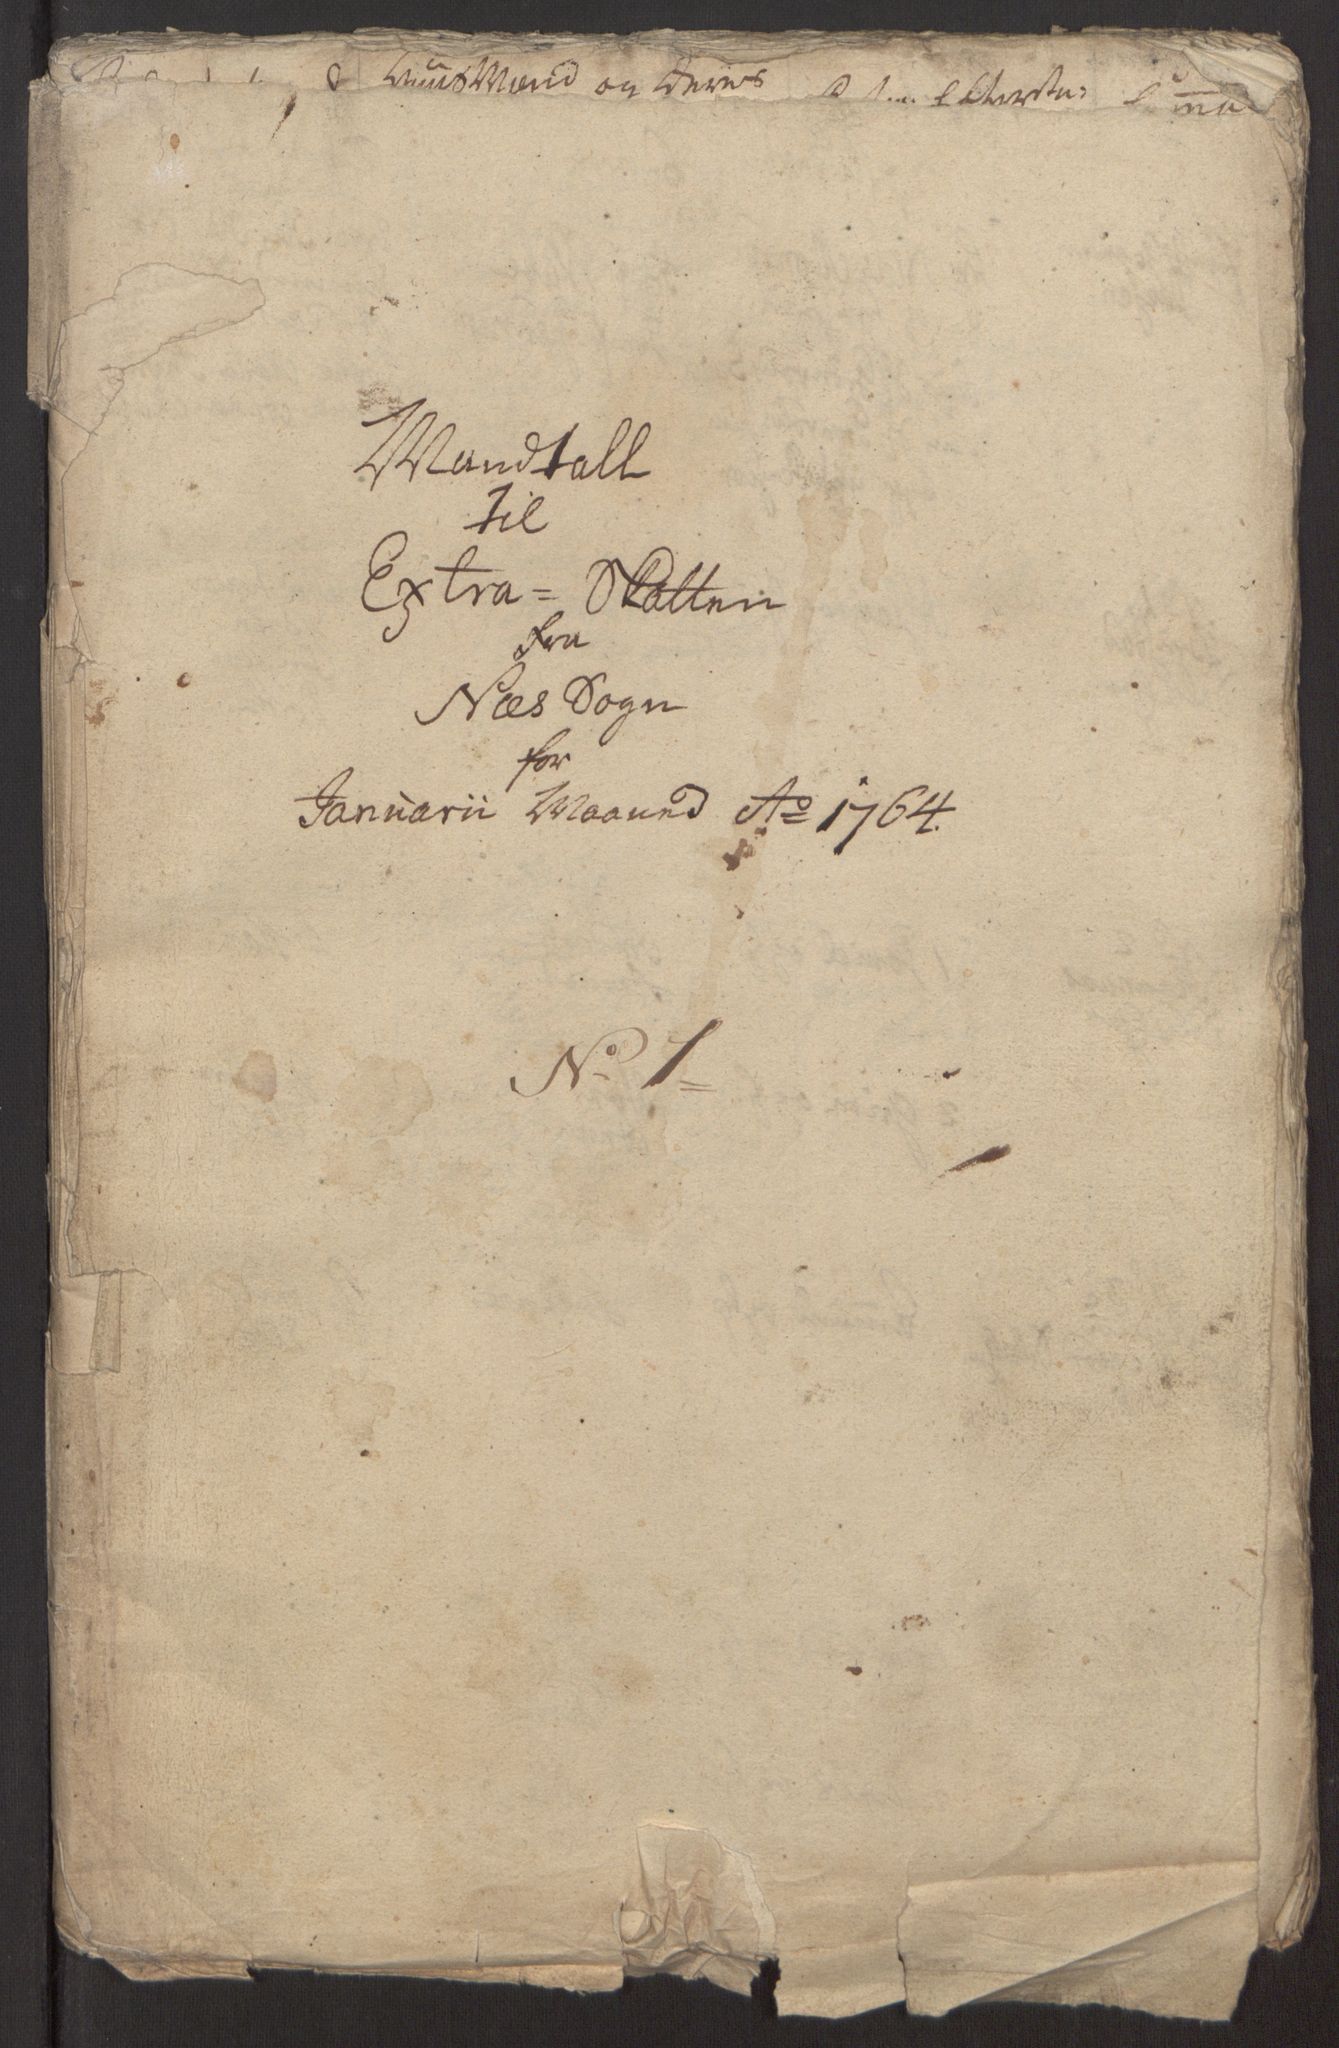 HuusMænd og deres
Mandtall
til
Extra= Skatten
fra
Næs Sogn
for
Januarii Maaned Ao 1764.
No 1=